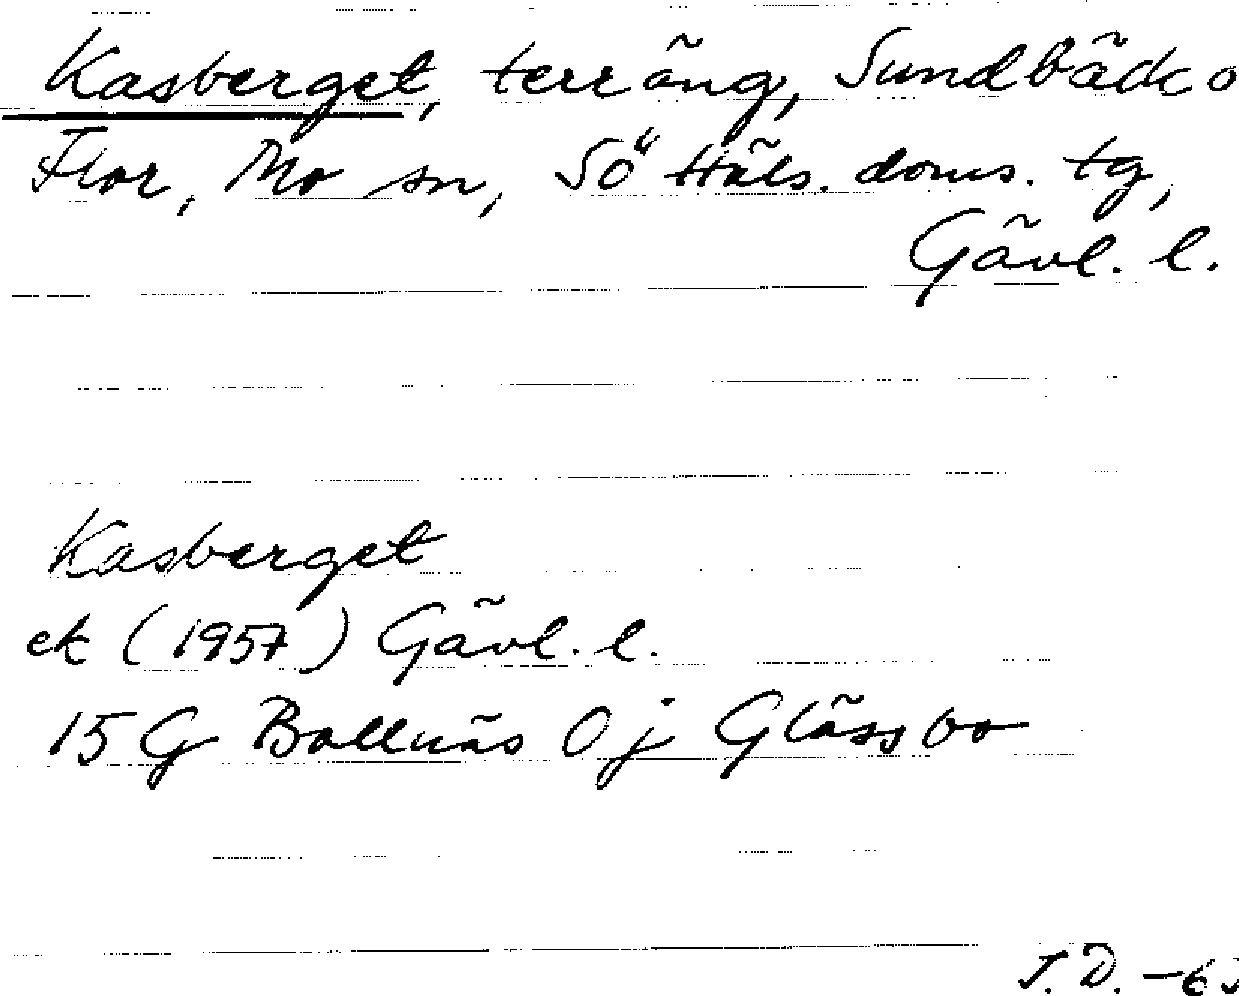 Kasberget, terräng, Sundbäck o
Flor, Mo sn, Sö Häls. doms. tg,
Gävl. l.
Kasberget
ek (1957) Gävl. l.
15 G Bollnäs 0 j Glässbo
J. D. -